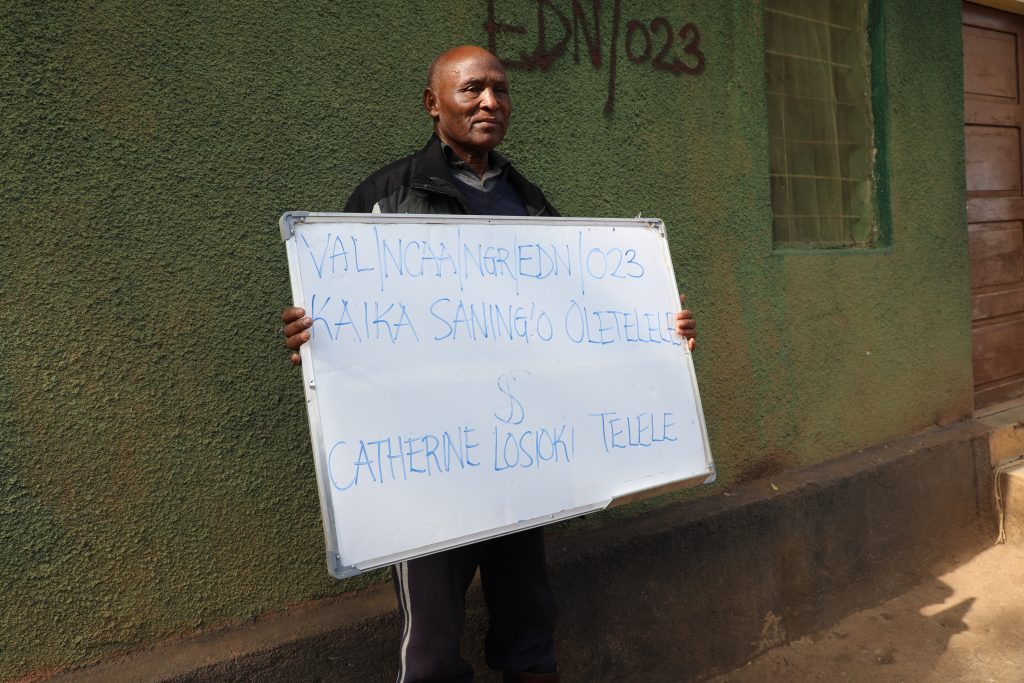 EDN/023
VAL/NCAA/NGR/EDN/023
KAIKA SANING'O OLETELELE
&
CATHERINE LOSIOKI TELELE